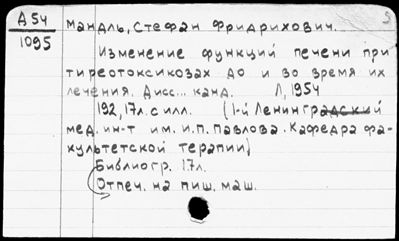 А54
1095
Мандль, Стефан Фридрихович.
Изменение функций печени при
тиреотоксикозах до и во время их
лечения. Дисс... канд. Л, 1954
192, 17л. с илл. (1-й Ленинградский
мед. ин-т им. И.П. Павлова. Кафедра фа-
культетской терапии)
Библиогр. 17л.
Отпеч. на пиш. маш.